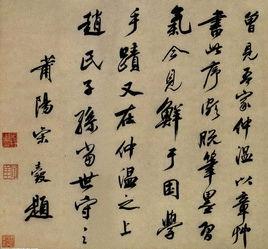 曾見吾家仲温以章艸
書此序頗脫筆墨習
氣今見鮮于困學
手蹟又在仲温之上
趙氏子孫當世守之
莆陽宋㲄題